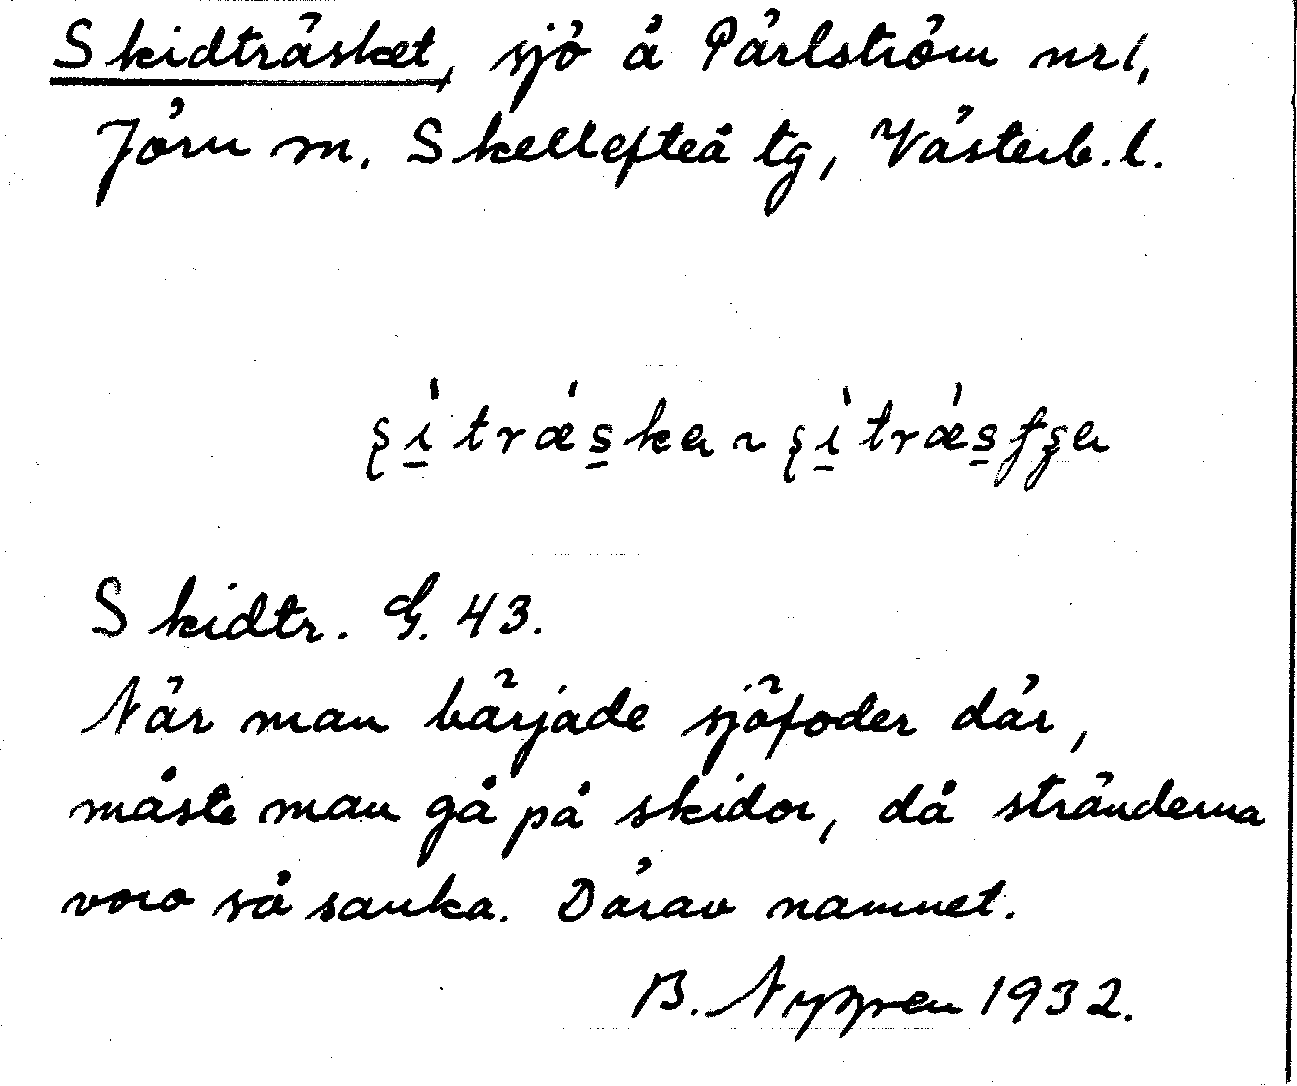 Skidträsket, sjö å Pärlström nr 1,
Jörn sn. Skellefteå tg, Västerb. l.
Skidtr. G. 43.
När man bärjade sjöfoder där,
måste man gå på skidor, då stränderna
voro så sanka. Därav namnet.
B. 1932.